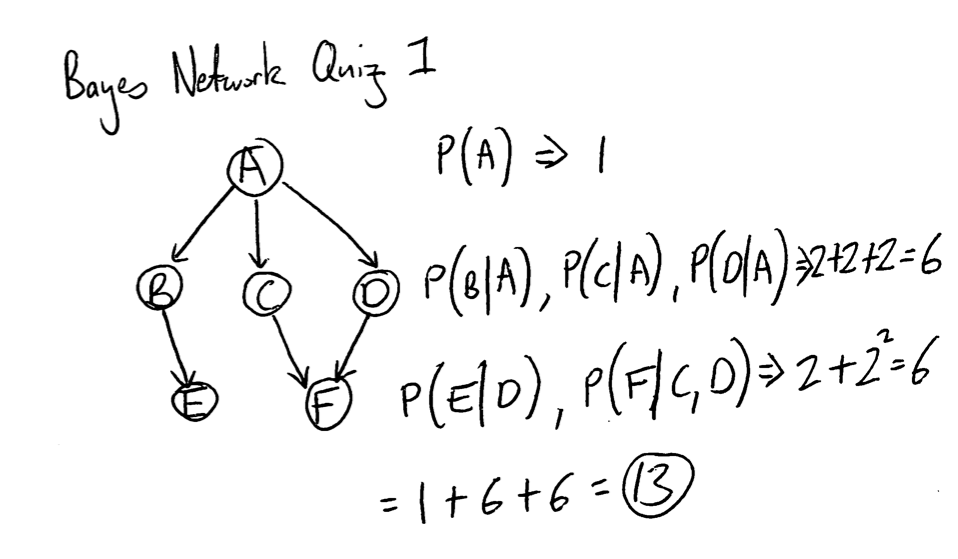 Bayes Network Quiz 1
A
P(A) ⇒ 1
B C D
P(B|A), P(C|A), P(D|A) ⇒ 2+2+2=6
E F
P(E|D), P(F|C,D) ⇒ 2+2²=6
= 1+6+6 = 13